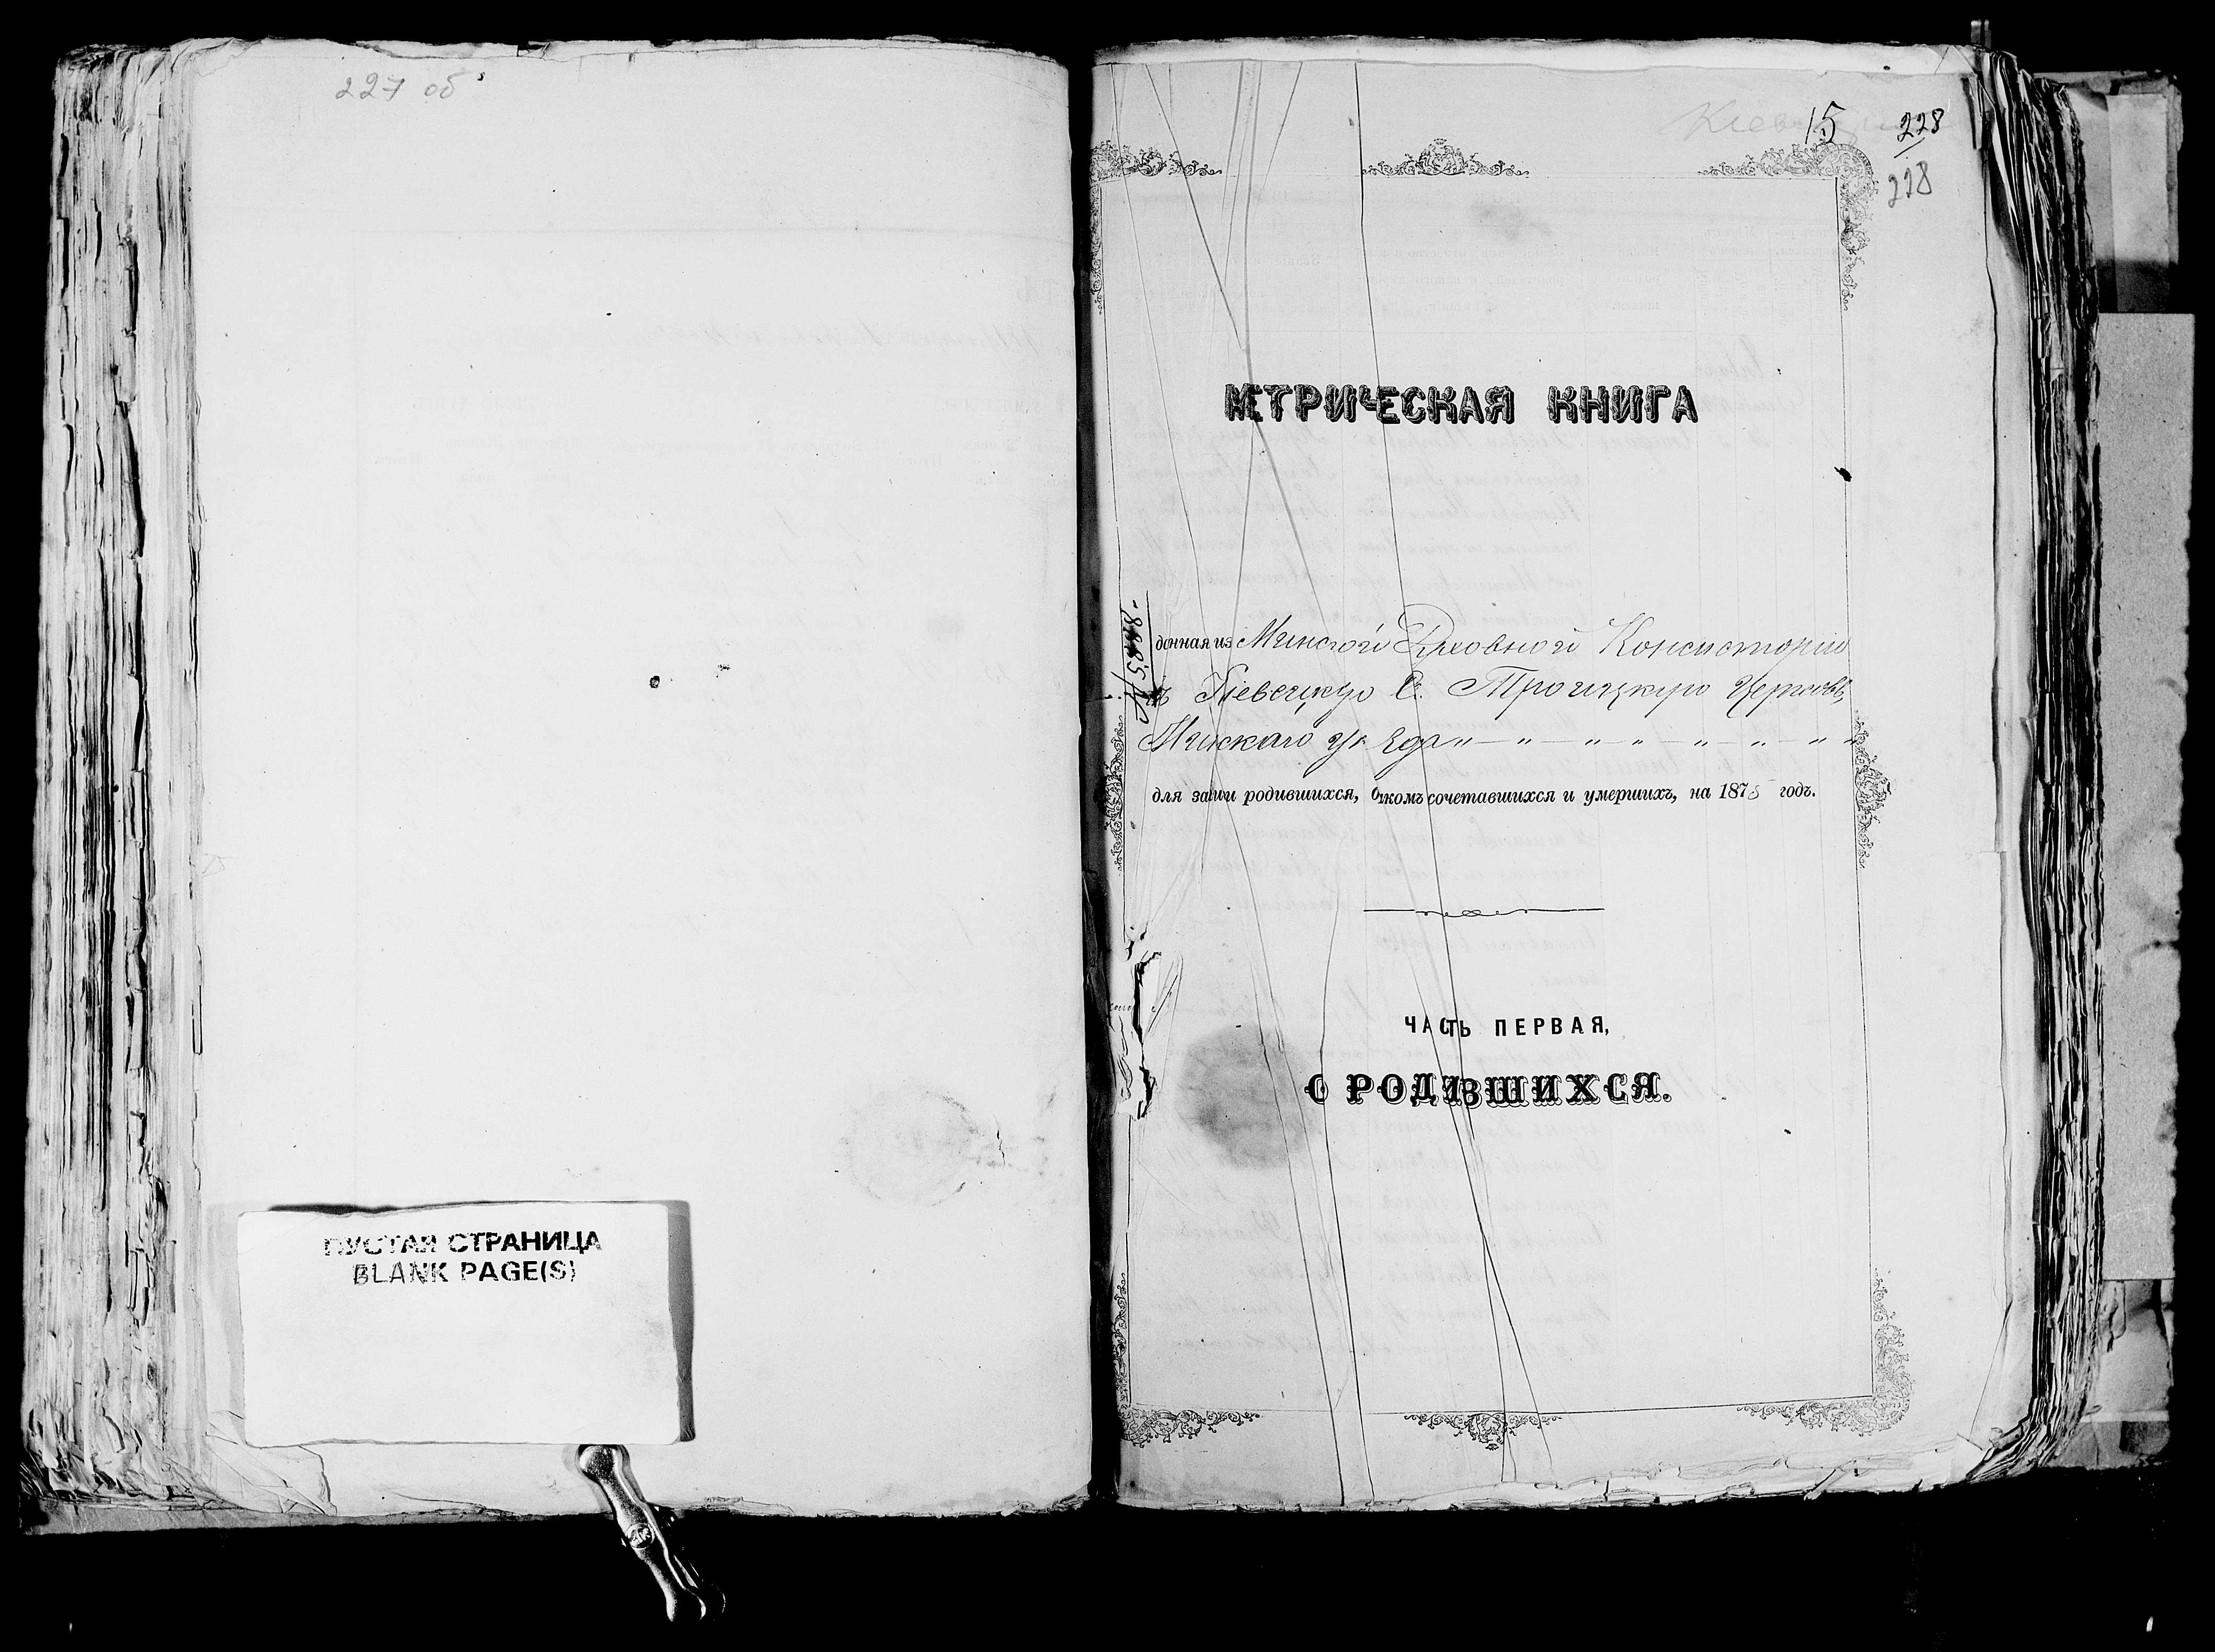 227 об
ПУСТАЯ СТРАНИЦА
BLANK PAGE(S)
15
228
228
МЕТРИЧЕСКАЯ КНИГА
№ 5,888.
данная из Минской Духовной Консисторіи
въ Кіевецкую С. Троицкую церковь,
Минскаго уѣзда
для записи родившихся, бракомъ сочетавшихся и умершихъ, на 1875 годъ.
ЧАСТЬ ПЕРВАЯ,
О РОДИВШИХСЯ.